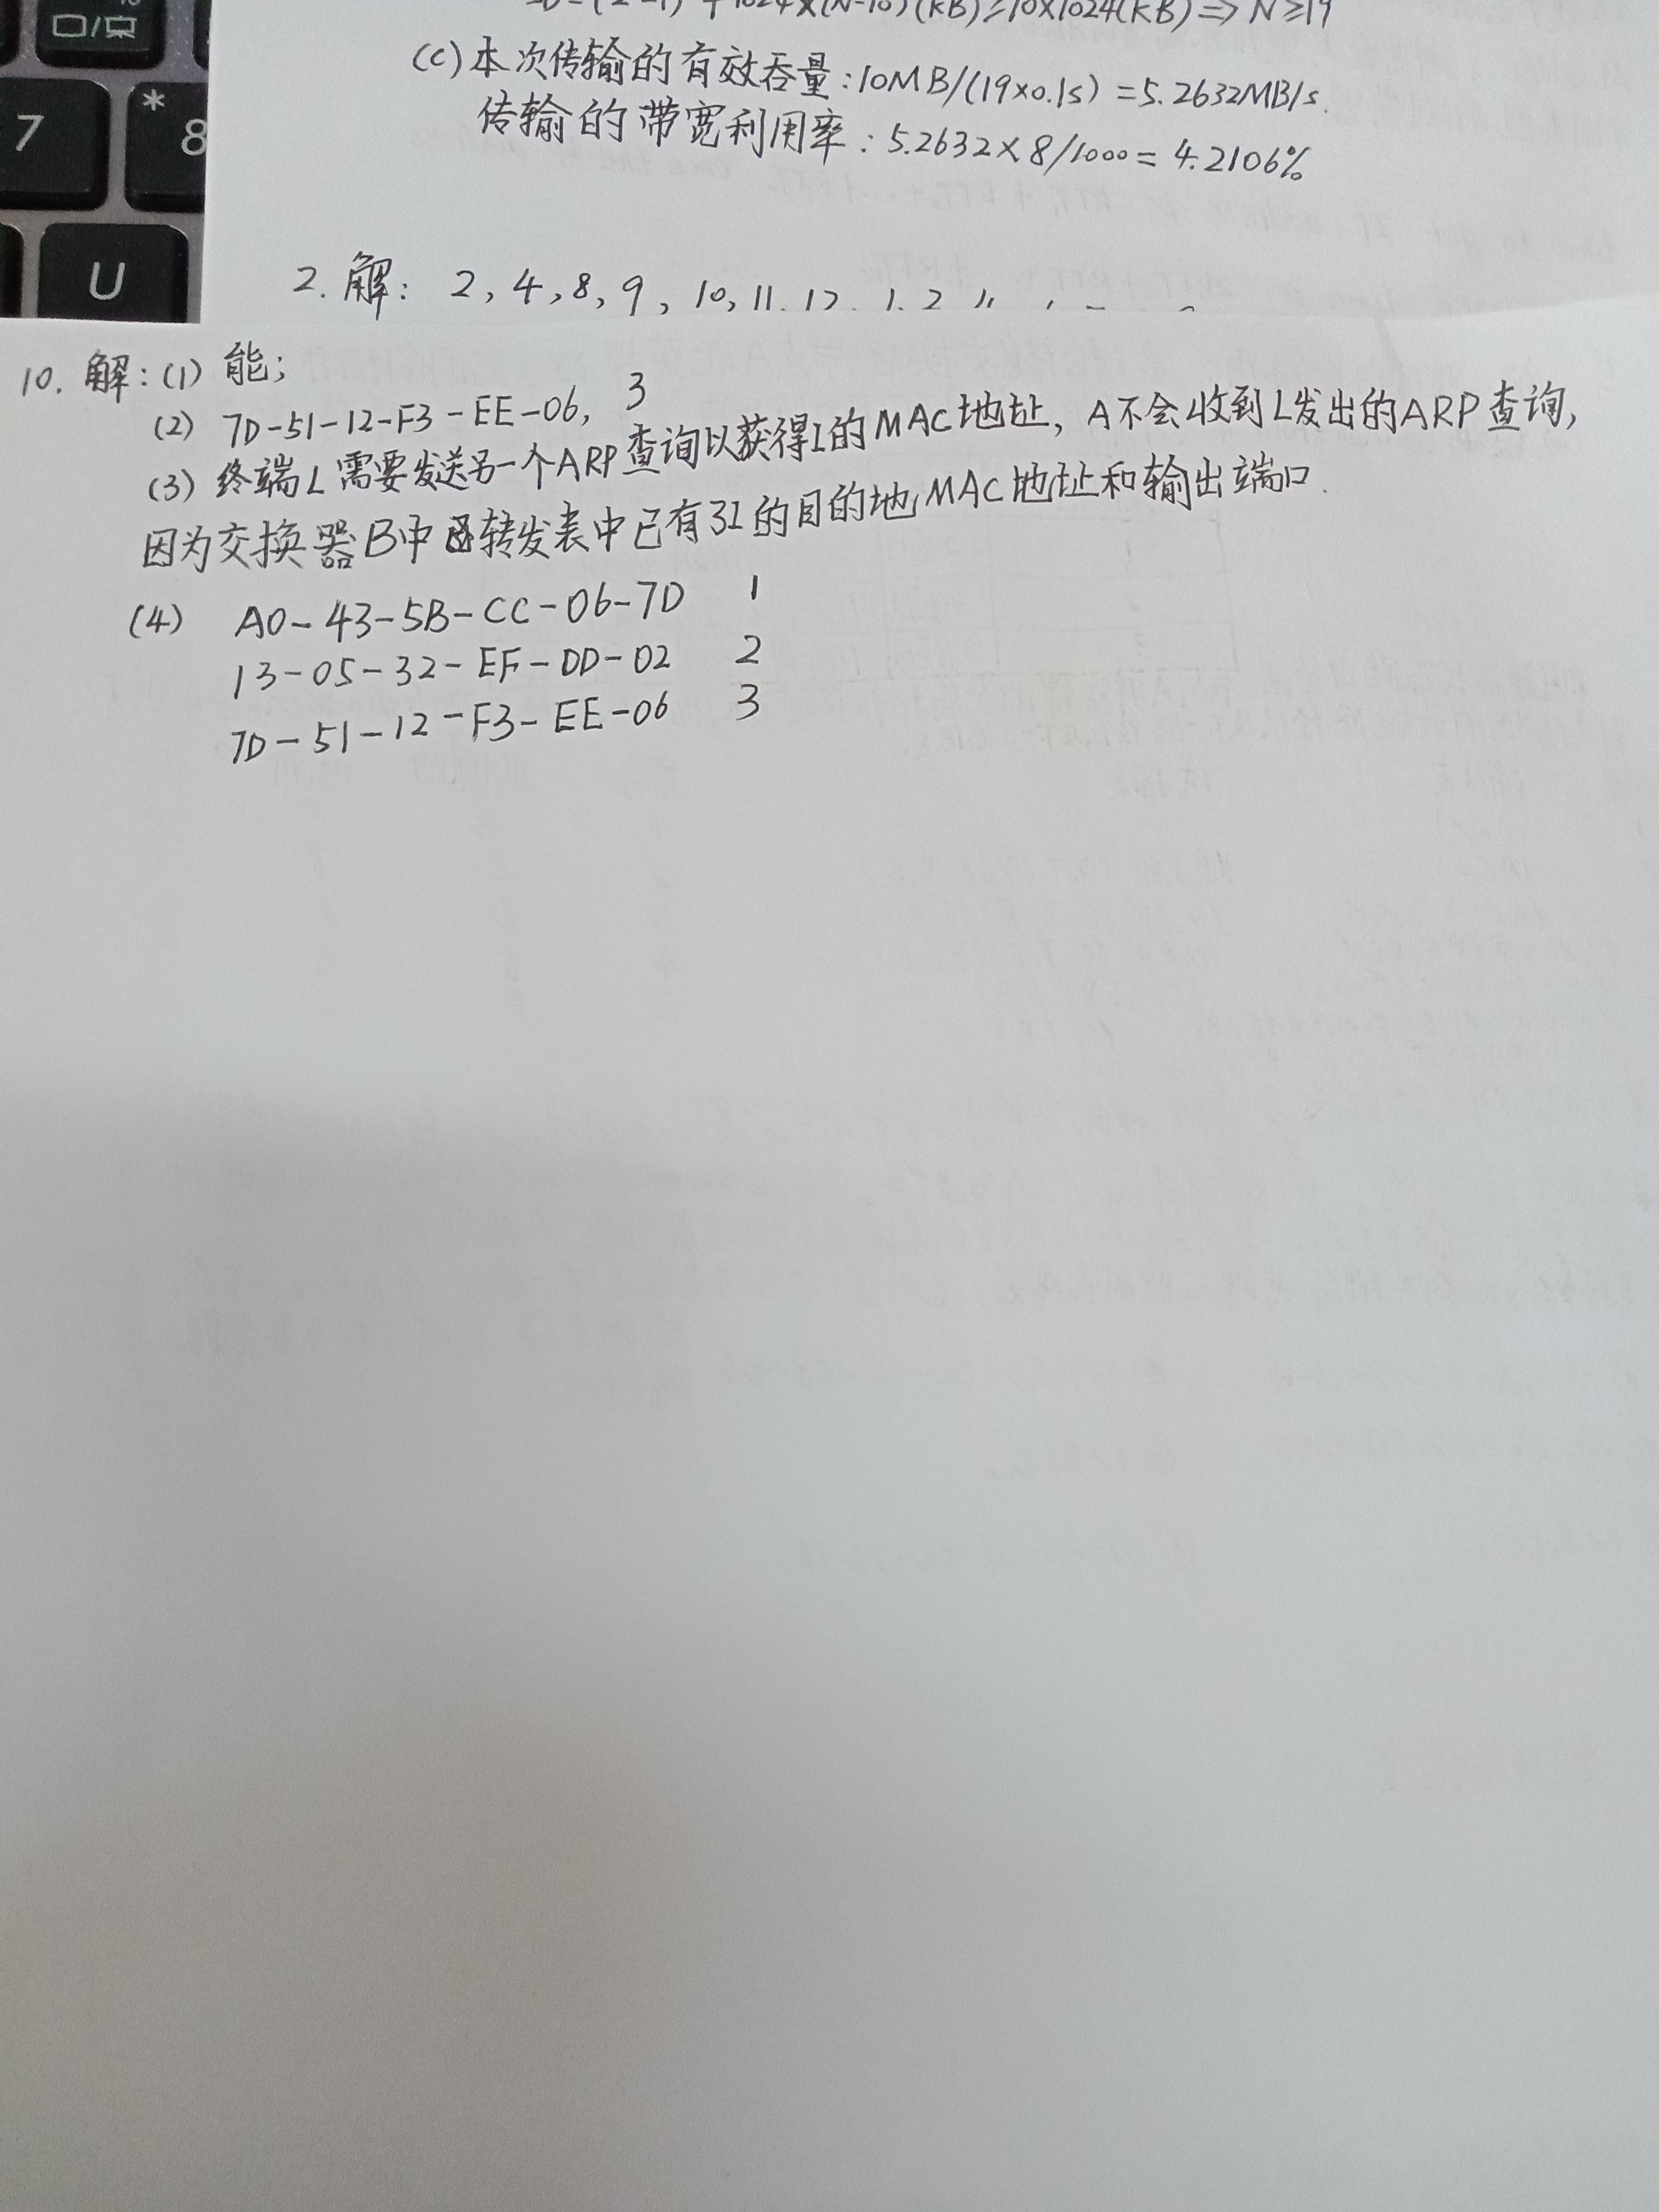 7
*
8
U
+1024×(N-10)(KB)≥10×1024(KB)⇒N≥19
(c)本次传输的有效吞量:10MB/(19×0.1s)=5.2632MB/s.
传输的带宽利用率:5.2632×8/1000=4.2106%
2.解: 2,4,8,9,10,11,12,1,2
10.解:(1)能;
(2) 7D-51-12-F3-EE-06, 3
(3)终端L需要发送另一个ARP查询以获得I的MAC地址,A不会收到L发出的ARP查询,
因为交换器B中转发表中已有了I的目的地MAC地址和输出端口.
(4) A0-43-5B-CC-06-7D 1
13-05-32-EF-DD-02 2
7D-51-12-F3-EE-06 3